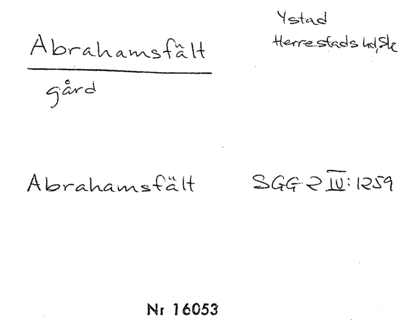 Abrahamsfält
gård
Ystad
Herrestads hd, Sk
Abrahamsfält SGG 2 IV: 1259
Nr 16053